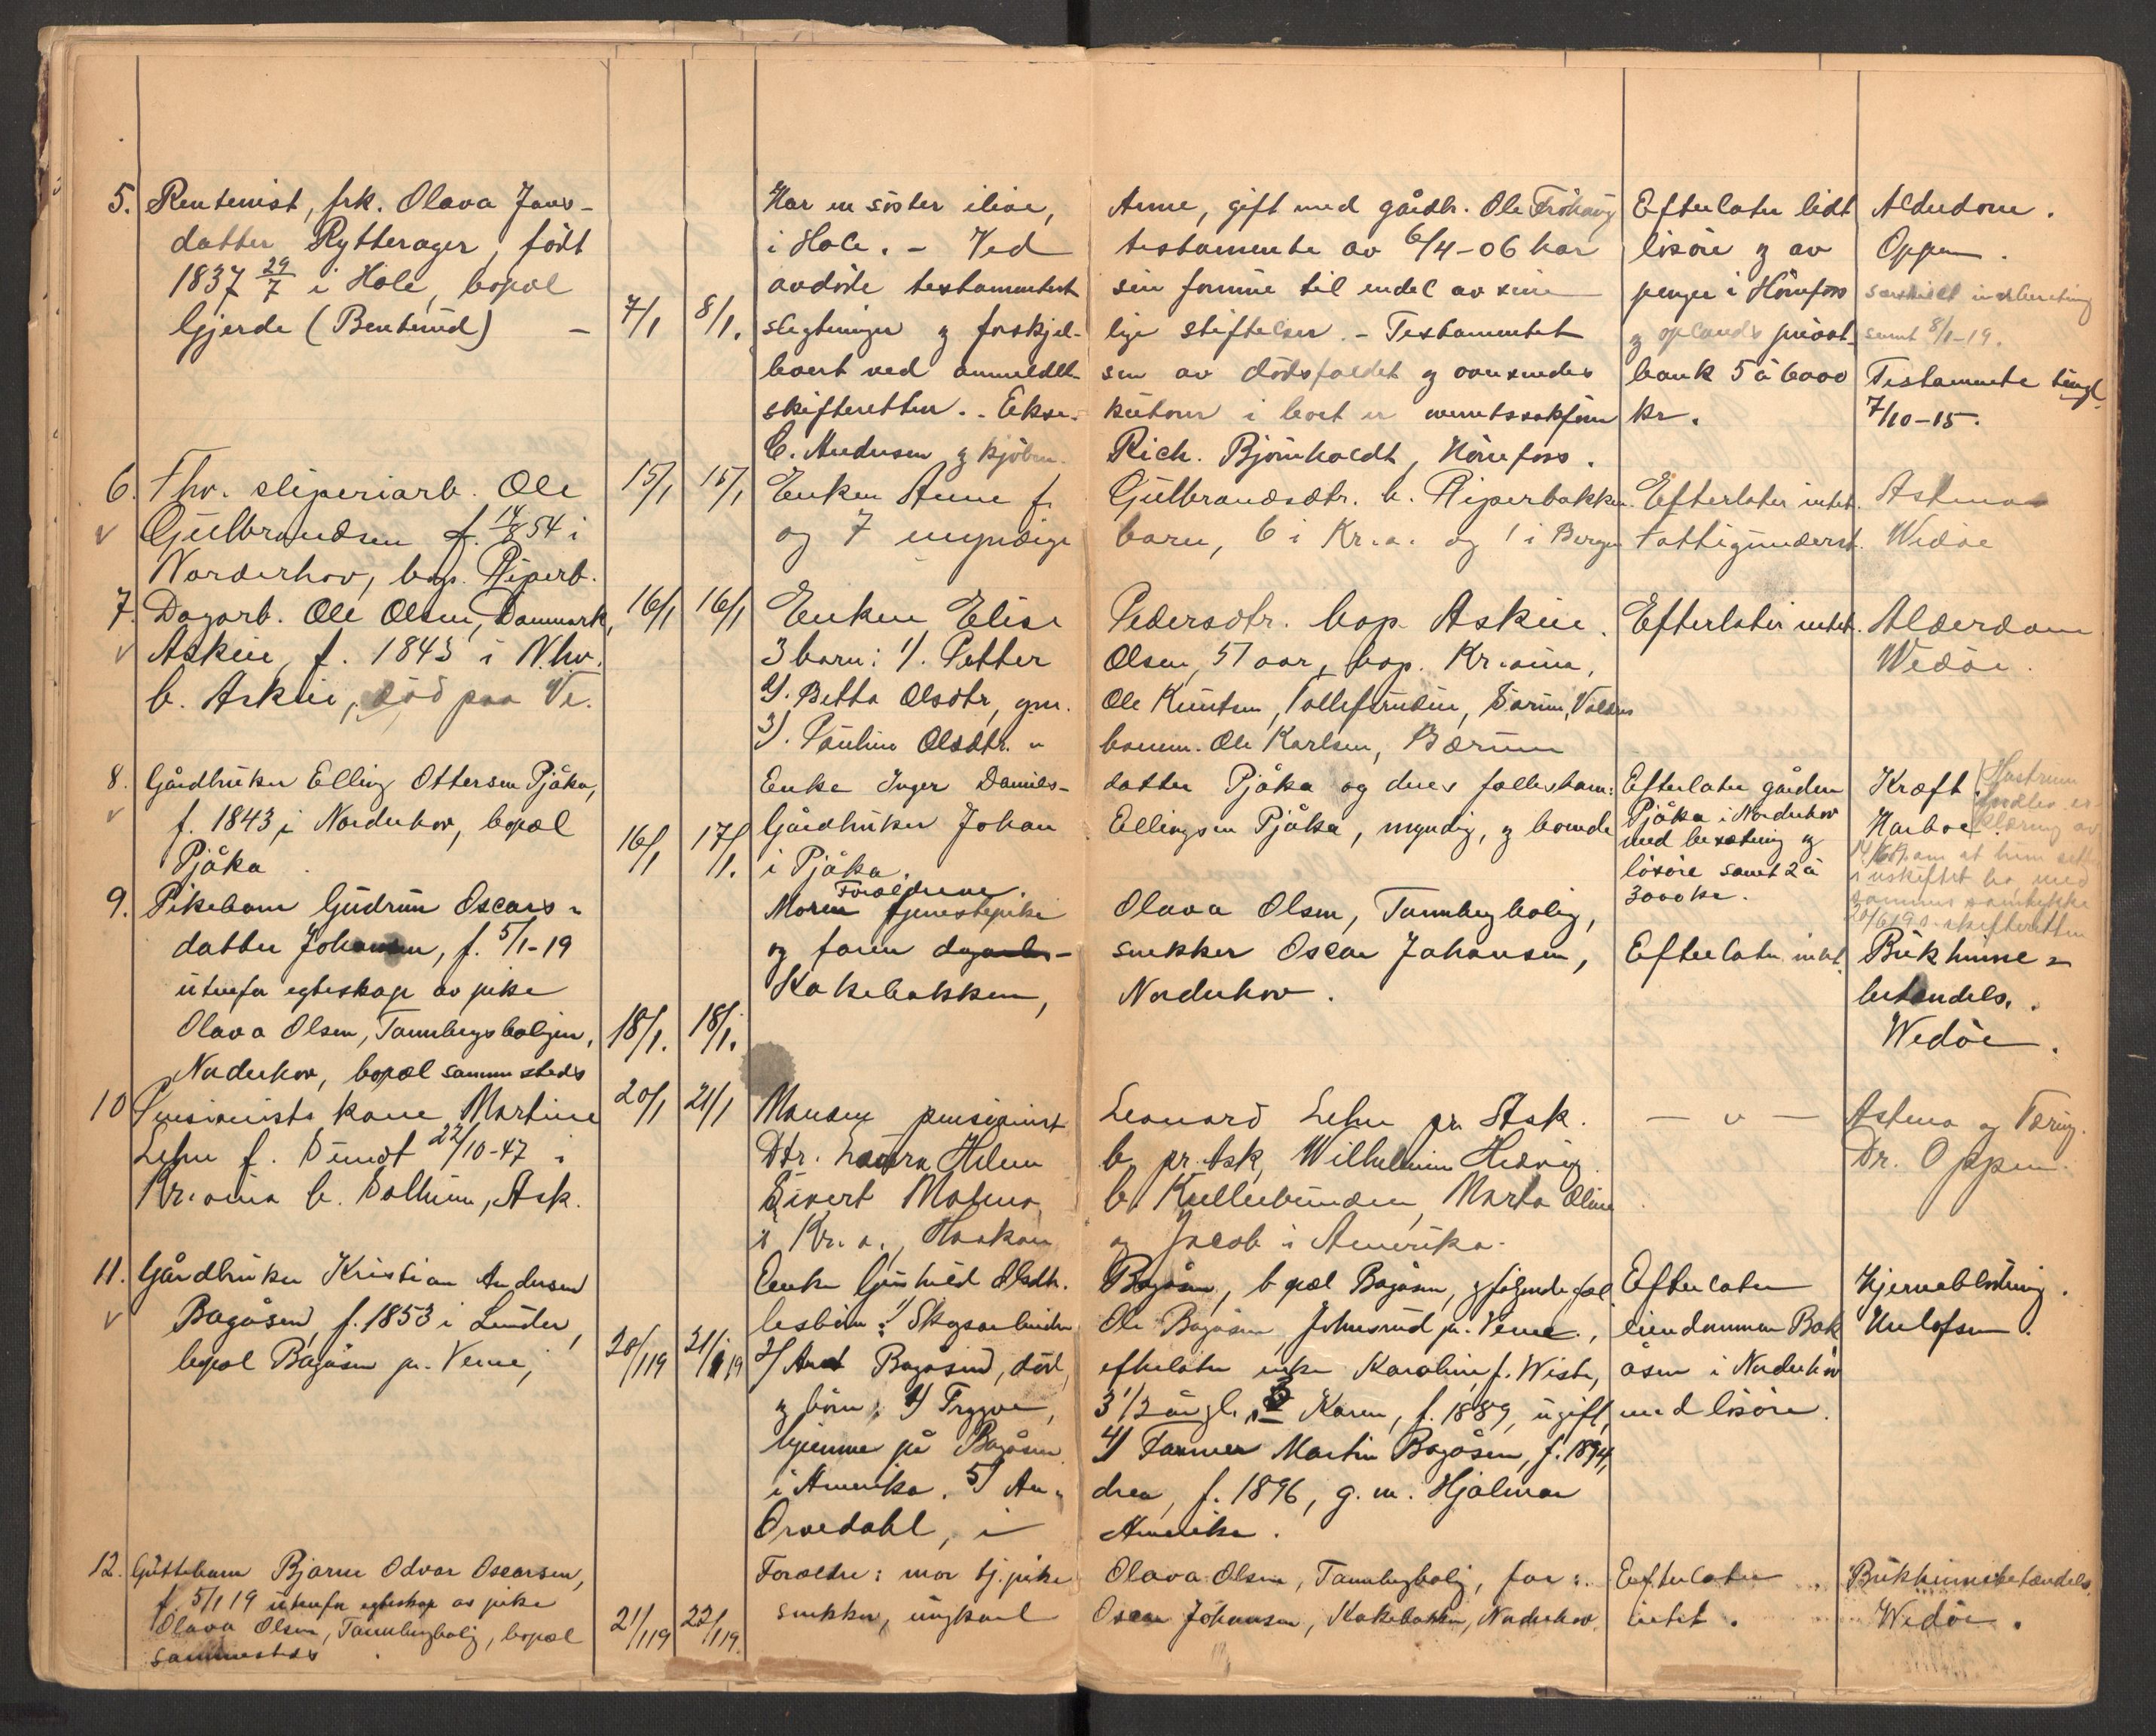 5. Rentenist, frk. Olava Jans-
datter Rytterager, född
1837 29/7 i Hole, bopæl
Gjerde (Benterud) -
7/1 8/1.
Har en søster ilive, Anne, gift med gårdbr. Ole Frøhaug
i Hole. - Ved testamente av 6/4-06 har
avdöde testamentert sin formue til endel av sine
slegtninger og forskjel- lige stiftelser. - Testamentet
blir ved anmeldel- sen av dödsfaldet og oversendes
skifteretten. - Ekse- kutorer i boet er
C. Andersen og kjöbm. Rich. Björnholdt, Hönefoss.
Efterlater lidt
lösöre og av
penger i Hönefoss
og oplands privat-
bank 5 à 6000
kr.
Alderdom.
Oppen.
særskilt indberetning
samt 8/1-19.
Testamente tingl.
7/10-15.
6. Fhv. sliperiarb. Ole
Gulbrandsen f. 14/8 54 i
Norderhov, bop. Piperb.
15/1 15/1
Enken Anne f. Gulbrandsdtr. b. Piperbakken.
og 7 myndige barn, 6 i Kr.a. og 1 i Bergen
Efterlater intet.
Fattigunderst.
Astma
Wedöe
7. Dagarb. Ole Olsen, Danmark,
Askim, f. 1843 i N.hov.
b. Askim, död paa Ve.
16/1 16/1
Enken Elise Pedersdtr. bop. Askim.
3 barn: 1). Petter Olsen, 51 aar, bop. Kr.ania,
2). Betta Olsdtr, gm. Ole Knutsen, Tollefsruden, Sørum, Valdres
3). Pauline Olsdtr. " banem. Ole Karlsen, Bærum
Efterlater intet.
Alderdom
Wedöe.
8. Gårdbruker Elling Ottersen Pjåka,
f. 1843 i Norderhov, bopæl
Pjåka
16/1 17/1.
Enke Inger Daniels- datter Pjåka og deres fellesbarn:
Gårdbruker Johan Ellingsen Pjåka, myndig, og boende
i Pjåka.
Efterlater gården
Pjåka i Norderhov
med besætning og
lösöre samt 2 à
3000 kr.
Kræft.
Harboe.
Hustruen
fredlev. er-
klæring av
14/6 19. om at hun sitter
i uskiftet bo, med
sönnens samtykke
20/6 19 s. skifteretten
9. Pikebarn Gudrun Oscars-
datter Johansen, f. 5/1-19
utenfor egteskap av pike
Olava Olsen, Tanbergboligen,
Norderhov, bopæl sammesteds
18/1. 18/1.
Forældrene.
Moren tjenestepike Olava Olsen, Tanbergbolig,
og faren dagarb- snekker Oscar Johansen,
Kakebakken, Norderhov.
Efterlater intet.
Bukhinne-
betændels.
Wedöe.
10 Pensionists kone Martine
Lehn f. Sundt 22/10-47 i
Kr.ania b. Solheim, Ask.
20/1 21/1
Manden pensionist Leonard Lehn pr. Ask.
Dtr. Laura Helene b. pr. Ask, Wilhelmine Hedvig
Sivert Matheus b. Kullerbunden, Marta Oline
i Kr.a., Haakon og Jacob i Amerika.
— " —
Astma og Tæring.
Dr. Oppen.
11. Gårdbruker Kristian Andersen
Bagåsen, f. 1853 i Lunder,
bopæl Bagåsen pr. Veme,
20/1 19 21/1 19
Enke Gunhild Olsdtr. Bagåsen, bopæl Bagåsen, og følgende fæl-
lesbarn: 1/ Skogsarbeider Ole Bagåsen, Johnsrud pr. Veme.,
2/ Anet Bagåsen, död, efterlater enke Karoline f. Wiste,
og barn: 1/ Trygve, 3 1/2 år gl., 3 Karen, f. 1889, ugift,
hjemme på Bagåsen 4/ Farmer Martin Bagåsen, f. 1894,
i Amerika. 5/ An- drea, f. 1896, g. m. Hjalmar
Orvedahl, i Amerika.
Efterlater
eiendommen Bak
åsen i Norderhov
med lösöre.
Hjerneblödning.
Hulofsen.
12. Guttebarn Bjarne Odvar Oscarsen,
f. 5/1 19 utenfor egteskap av pike
Olava Olsen, Tanbergbolig, bopæl
sammesteds
21/1 19 22/1 19.
Forældre: mor tj.pike Olava Olsen, Tanbergbolig, far:
snekker, ungkarl Oscar Johansen, Kakebakken, Norderhov.
Efterlater
intet.
Bukhinnebetændels.
Wedöe.